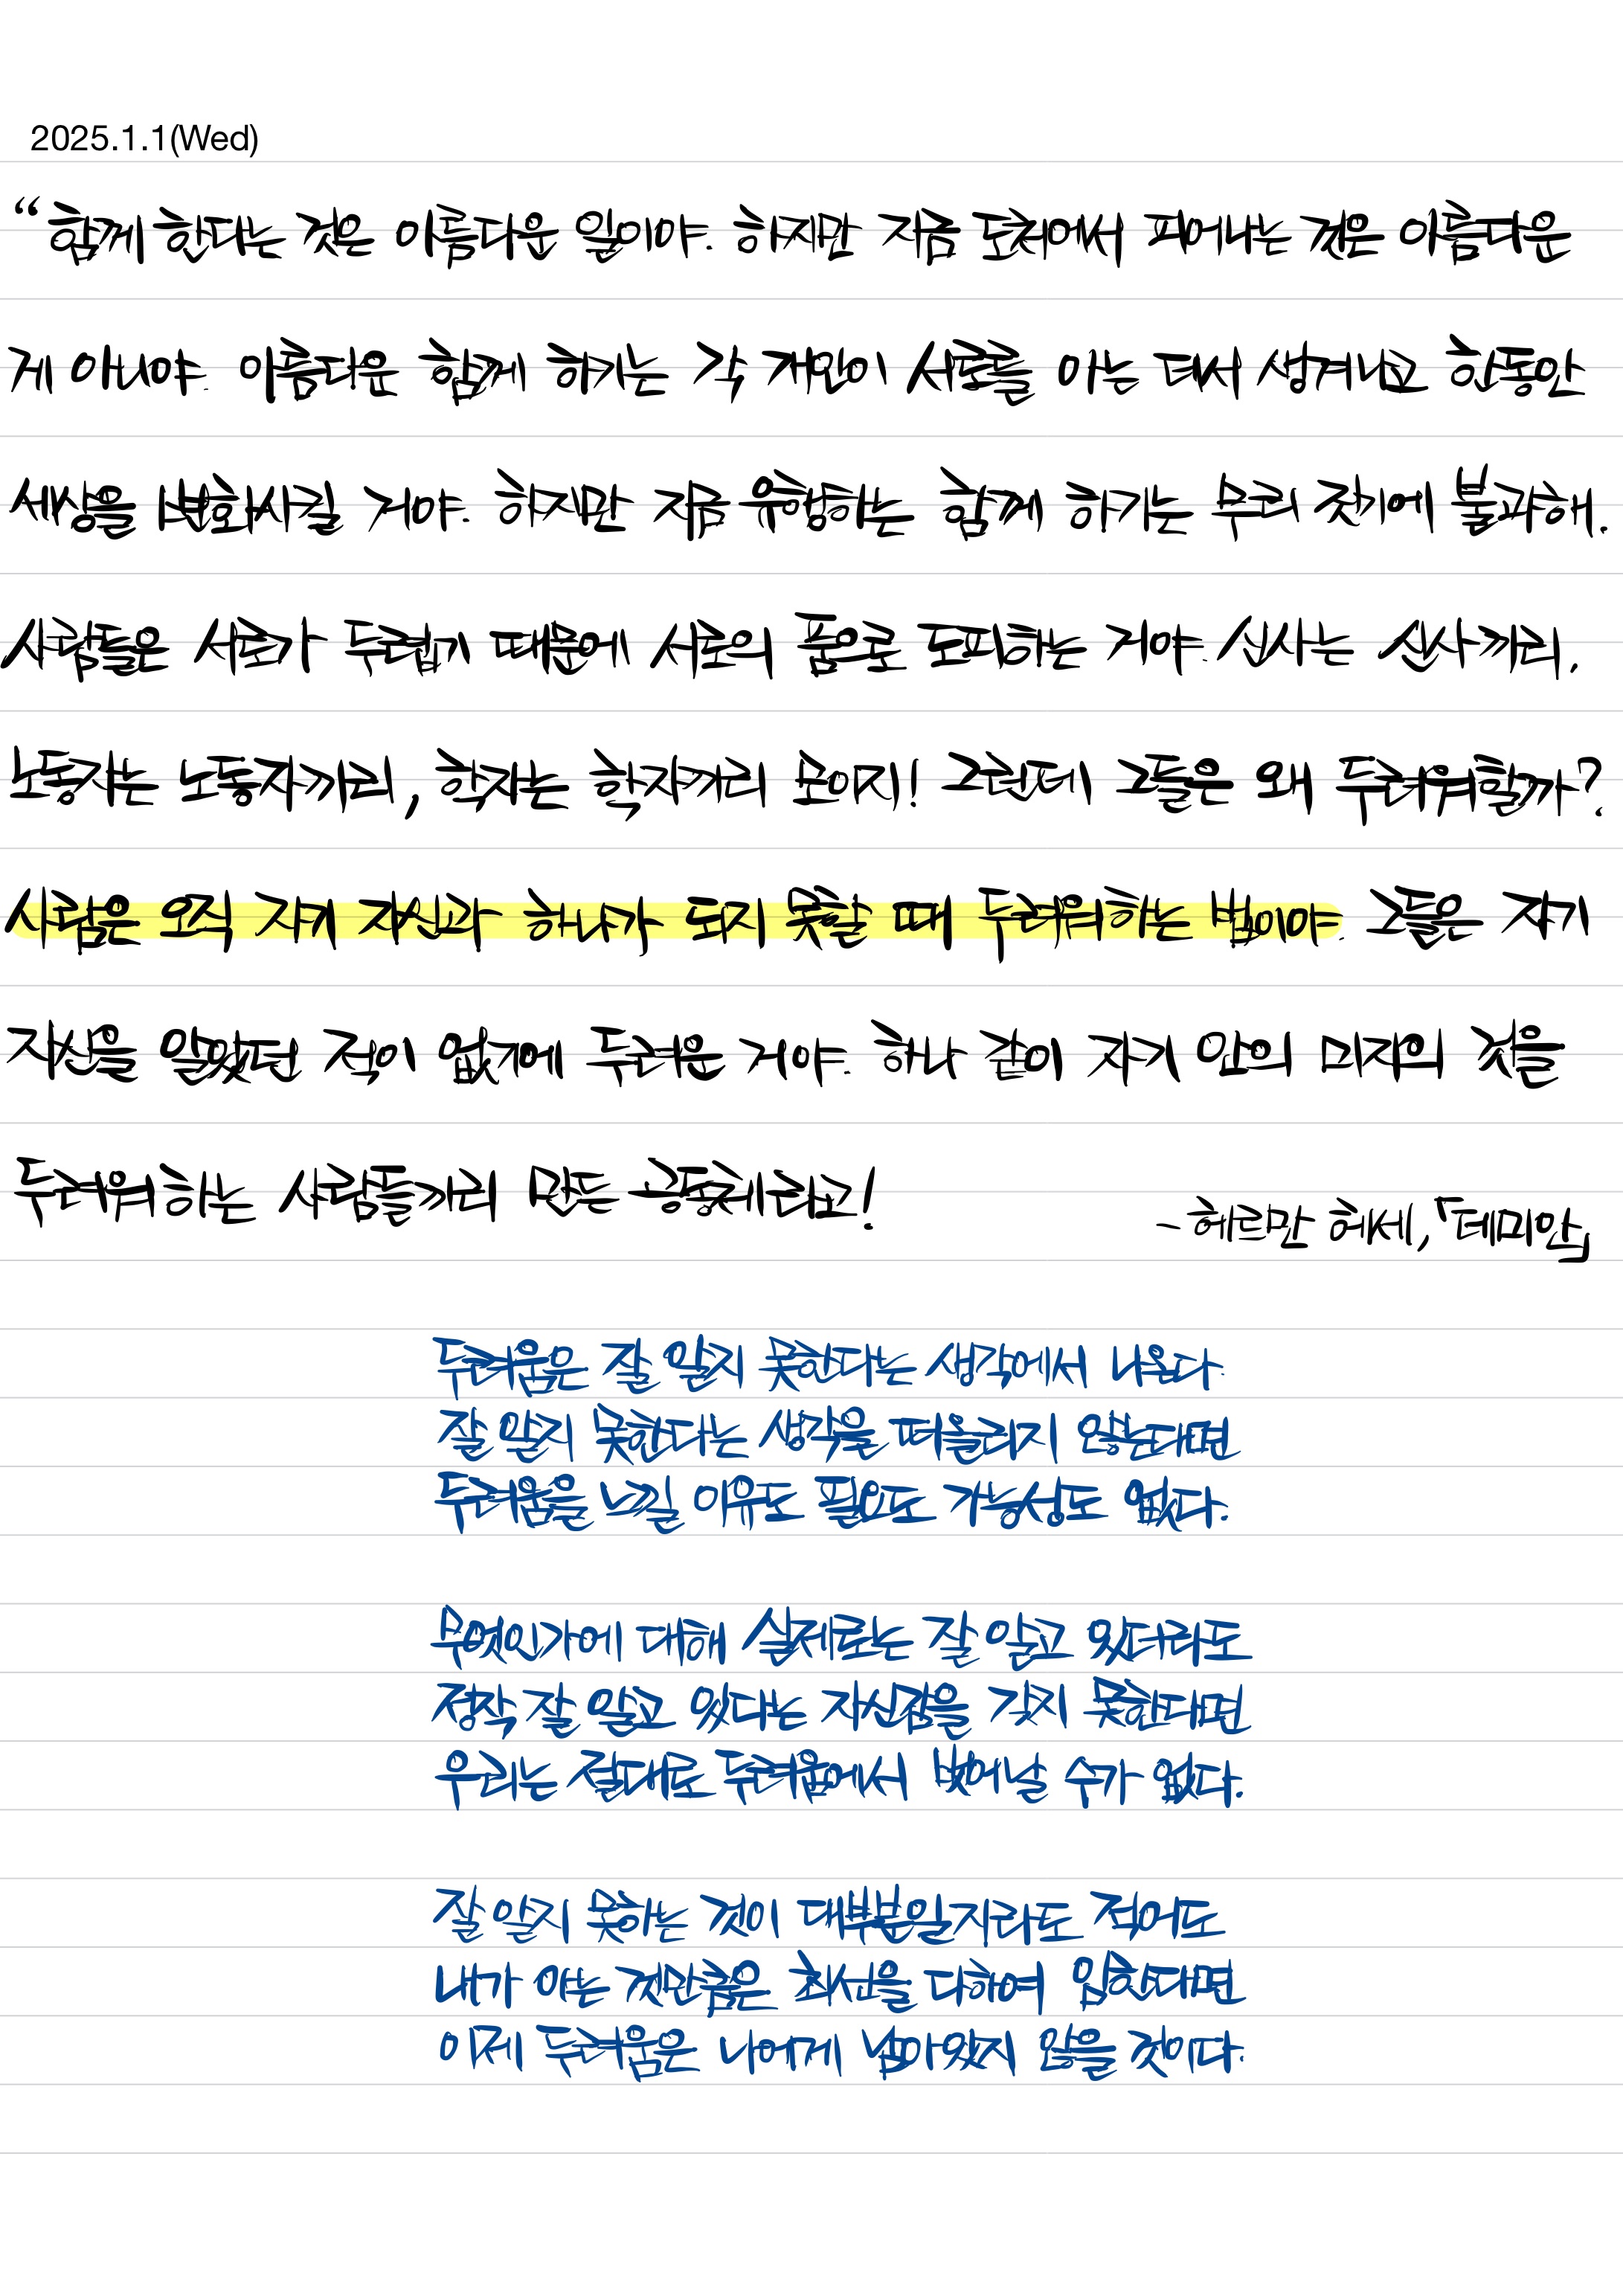 2025.1.1(Wed)
“함께 한다는 것은 아름다운 일이야. 하지만 지금 도처에서 피어나는 것은 아름다운
게 아니야. 아름다운 함께 하기는 각 개인이 서로를 아는 데서 생겨나고 한동안
세상을 변화시킬 거야. 하지만 지금 유행하는 함께 하기는 무리 짓기에 불과해.
사람들은 서로가 두렵기 때문에 서로의 품으로 도피하는 거야. 신사는 신사끼리,
노동자는 노동자끼리, 학자는 학자끼리 모이지! 그런데 그들은 왜 두려워할까?
사람은 오직 자기 자신과 하나가 되지 못할 때 두려워하는 법이야. 그들은 자기
자신을 알았던 적이 없기에 두려운 거야. 하나 같이 자기 안의 미지의 것을
두려워하는 사람들끼리 만든 공동체라고!
- 헤르만 헤세,「데미안」
두려움은 잘 알지 못한다는 생각에서 나온다.
잘 알지 못한다는 생각을 떠올리지 않는다면
두려움을 느낄 이유도 필요도 가능성도 없다.
무엇인가에 대해 실제로는 잘 알고 있더라도
정작 잘 알고 있다는 자신감을 갖지 못한다면
우리는 절대로 두려움에서 벗어날 수가 없다.
잘 알지 못하는 것이 대부분일지라도 적어도
내가 아는 것만큼은 최선을 다하여 임한다면
이제 두려움은 나에게 남아있지 않을 것이다.